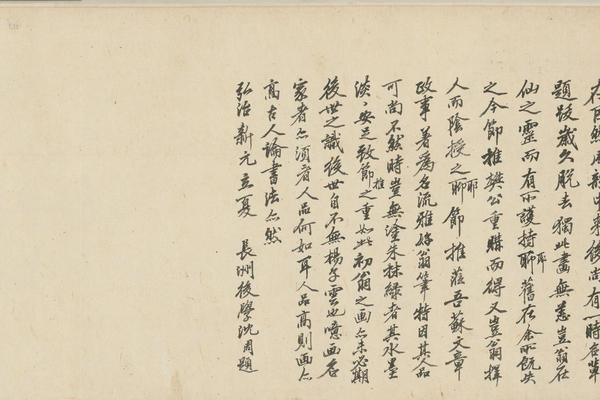 巨然風韻中來後尚有一時名輩
題跋歲久脫去獨此畫無恙豈翁在
仙之靈而有所護持聊耶舊在余所既失
之今節推樊公重購而得又豈翁擇
人而陰授之聊耶節推蒞吾蘇文章
政事著為名流雅好翁筆特因其人品
可尚不然時豈無塗朱抹綠者其水墨
淡〻安足致節推之重如此初翁之画亦未必期
後世之識後世自不無楊子雲也噫画名
家者亦須看人品何如耳人品高則画亦
高古人論書法亦然
弘治新元立夏 長洲後學沈周題